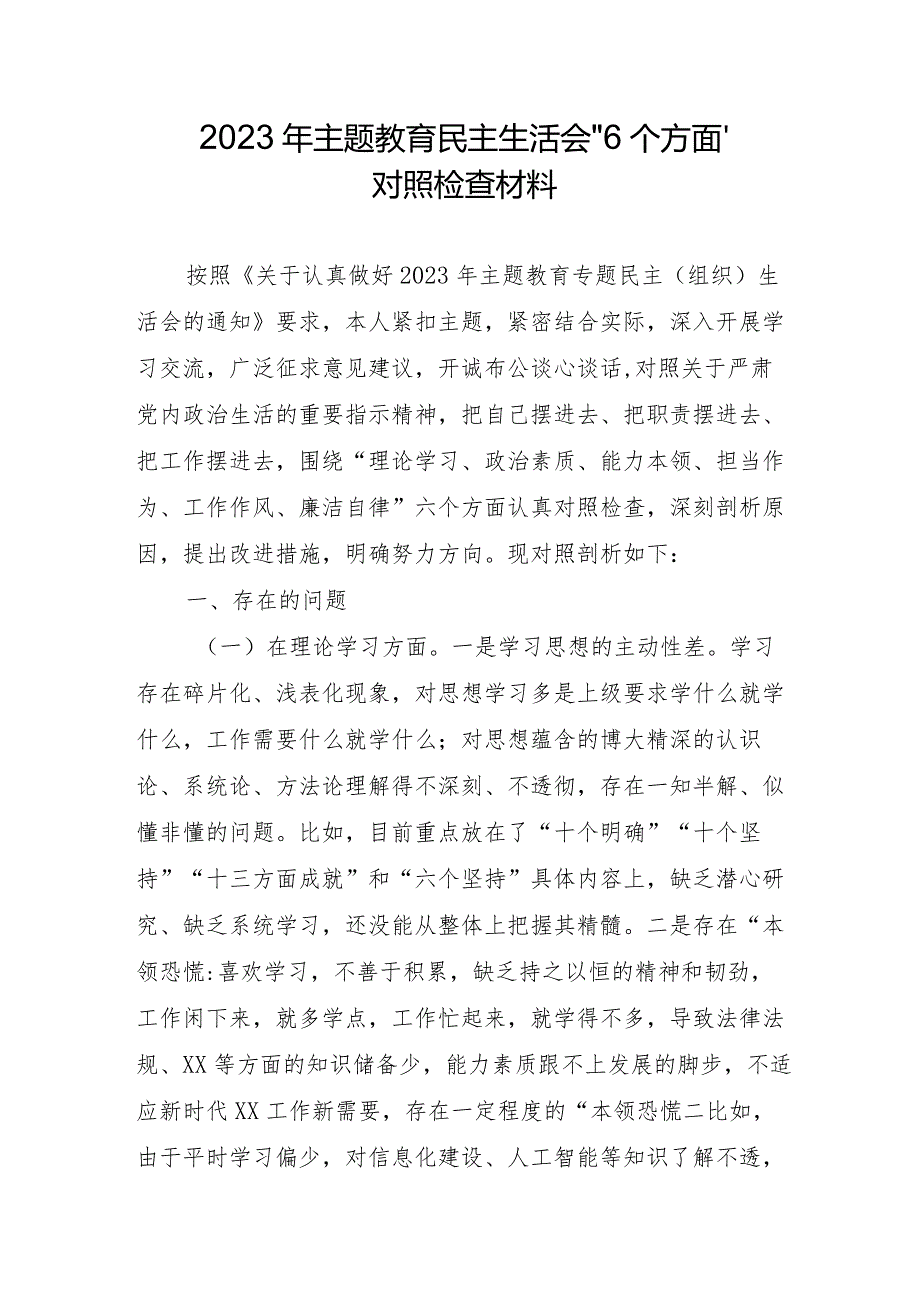 2023年主题教育民主生活会"6个方面'
对照检查材料
按照《关于认真做好2023年主题教育专题民主（组织）生
活会的通知》要求，本人紧扣主题，紧密结合实际，深入开展学
习交流，广泛征求意见建议，开诚布公谈心谈话,对照关于严肃
党内政治生活的重要指示精神，把自己摆进去、把职责摆进去、
把工作摆进去，围绕“理论学习、政治素质、能力本领、担当作
为、工作作风、廉洁自律”六个方面认真对照检查，深刻剖析原
因，提出改进措施，明确努力方向。现对照剖析如下：
一、存在的问题
（一）在理论学习方面。一是学习思想的主动性差。学习
存在碎片化、浅表化现象，对思想学习多是上级要求学什么就学
什么，工作需要什么就学什么；对思想蕴含的博大精深的认识
论、系统论、方法论理解得不深刻、不透彻，存在一知半解、似
懂非懂的问题。比如，目前重点放在了“十个明确”“十个坚
持”“十三方面成就”和“六个坚持”具体内容上，缺乏潜心研
究、缺乏系统学习，还没能从整体上把握其精髓。二是存在“本
领恐慌:喜欢学习，不善于积累，缺乏持之以恒的精神和韧劲，
工作闲下来，就多学点，工作忙起来，就学得不多，导致法律法
规、XX等方面的知识储备少，能力素质跟不上发展的脚步，不适
应新时代XX工作新需要，存在一定程度的“本领恐慌二比如，
由于平时学习偏少，对信息化建设、人工智能等知识了解不透，